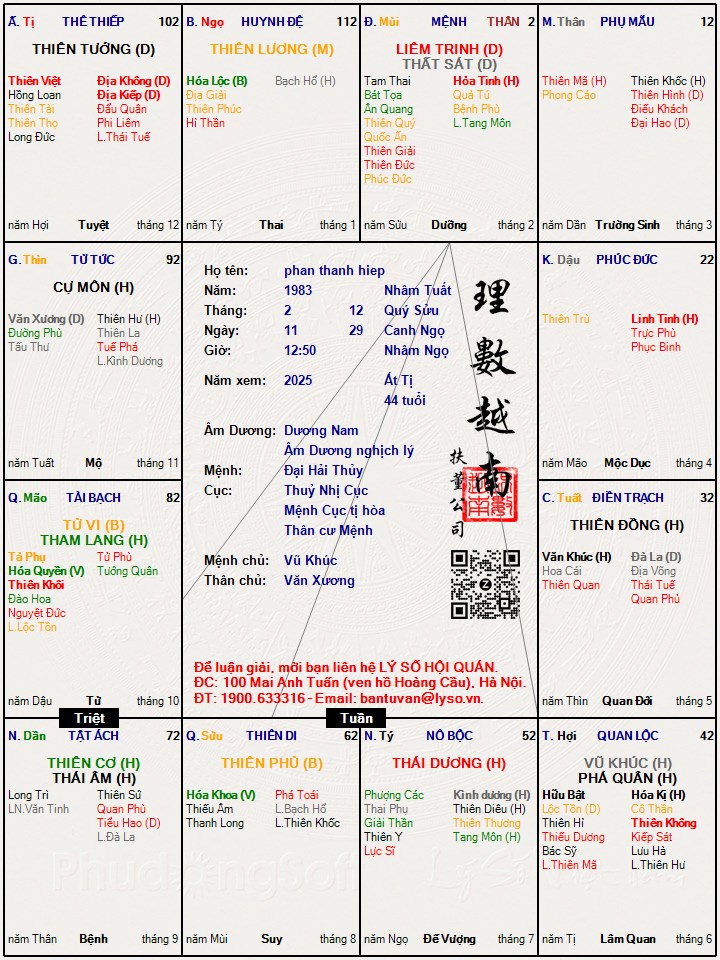 Ấ. Tị THÊ THIẾP 102
THIÊN TƯỚNG (D)
Thiên Việt Địa Không (D)
Hồng Loan Địa Kiếp (D)
Thiên Tài Đẩu Quân
Thiên Thọ Phi Liêm
Long Đức L.Thái Tuế
năm Hợi Tuyệt tháng 12
B. Ngọ HUYNH ĐỆ 112
THIÊN LƯƠNG (M)
Hóa Lộc (B) Bạch Hổ (H)
Địa Giải
Thiên Phúc
Hỉ Thần
năm Tý Thai tháng 1
Đ. Mùi MỆNH THÂN 2
LIÊM TRINH (D)
THẤT SÁT (D)
Tam Thai Hỏa Tinh (H)
Bát Tọa Quả Tú
Ân Quang Bệnh Phù
Thiên Quý L.Tang Môn
Quốc Ấn
Thiên Giải
Thiên Đức
Phúc Đức
năm Sửu Dưỡng tháng 2
M. Thân PHỤ MẪU 12
Thiên Mã (H) Thiên Khốc (H)
Phong Cáo Thiên Hình (D)
Điếu Khách
Đại Hao (D)
năm Dần Trường Sinh tháng 3
G. Thìn TỬ TỨC 92
CỰ MÔN (H)
Văn Xương (D) Thiên Hư (H)
Đường Phù Thiên La
Tấu Thư Tuế Phá
L.Kình Dương
năm Tuất Mộ tháng 11
Họ tên: phan thanh hiep
Năm: 1983 Nhâm Tuất
Tháng: 2 12 Quý Sửu
Ngày: 11 29 Canh Ngọ
Giờ: 12:50 Nhâm Ngọ
Năm xem: 2025 Ất Tị
44 tuổi
Âm Dương: Dương Nam
Âm Dương nghịch lý
Mệnh: Đại Hải Thủy
Cục: Thuỷ Nhị Cục
Mệnh Cục tị hòa
Thân cư Mệnh
Mệnh chủ: Vũ Khúc
Thân chủ: Văn Xương
理數越南
扶董公司
Để luận giải, mời bạn liên hệ LÝ SỐ HỘI QUÁN.
ĐC: 100 Mai Anh Tuấn (ven hồ Hoàng Cầu), Hà Nội.
ĐT: 1900.633316 - Email: bantuvan@lyso.vn.
K. Dậu PHÚC ĐỨC 22
Thiên Trù Linh Tinh (H)
Trực Phù
Phục Binh
năm Mão Mộc Dục tháng 4
Q. Mão TÀI BẠCH 82
TỬ VI (B)
THAM LANG (H)
Tả Phụ Tử Phù
Hóa Quyền (V) Tướng Quân
Thiên Khôi
Đào Hoa
Nguyệt Đức
L.Lộc Tồn
năm Dậu Tử tháng 10
C. Tuất ĐIỀN TRẠCH 32
THIÊN ĐỒNG (H)
Văn Khúc (H) Đà La (D)
Hoa Cái Địa Võng
Thiên Quan Thái Tuế
Quan Phủ
năm Thìn Quan Đới tháng 5
Triệt
Tuần
N. Dần TẬT ÁCH 72
THIÊN CƠ (H)
THÁI ÂM (H)
Long Trì Thiên Sứ
LN.Văn Tinh Quan Phù
Tiểu Hao (D)
L.Đà La
năm Thân Bệnh tháng 9
Q. Sửu THIÊN DI 62
THIÊN PHỦ (B)
Hóa Khoa (V) Phá Toái
Thiếu Âm L.Bạch Hổ
Thanh Long L.Thiên Khốc
năm Mùi Suy tháng 8
N. Tý NÔ BỘC 52
THÁI DƯƠNG (H)
Phượng Các Kình dương (H)
Thai Phụ Thiên Diêu (H)
Giải Thần Thiên Thương
Thiên Y Tang Môn (H)
Lực Sĩ
năm Ngọ Đế Vượng tháng 7
T. Hợi QUAN LỘC 42
VŨ KHÚC (H)
PHÁ QUÂN (H)
Hữu Bật Hóa Kị (H)
Lộc Tồn (D) Cô Thần
Thiên Hỉ Thiên Không
Thiếu Dương Kiếp Sát
Bác Sỹ Lưu Hà
L.Thiên Mã L.Thiên Hư
năm Tị Lâm Quan tháng 6